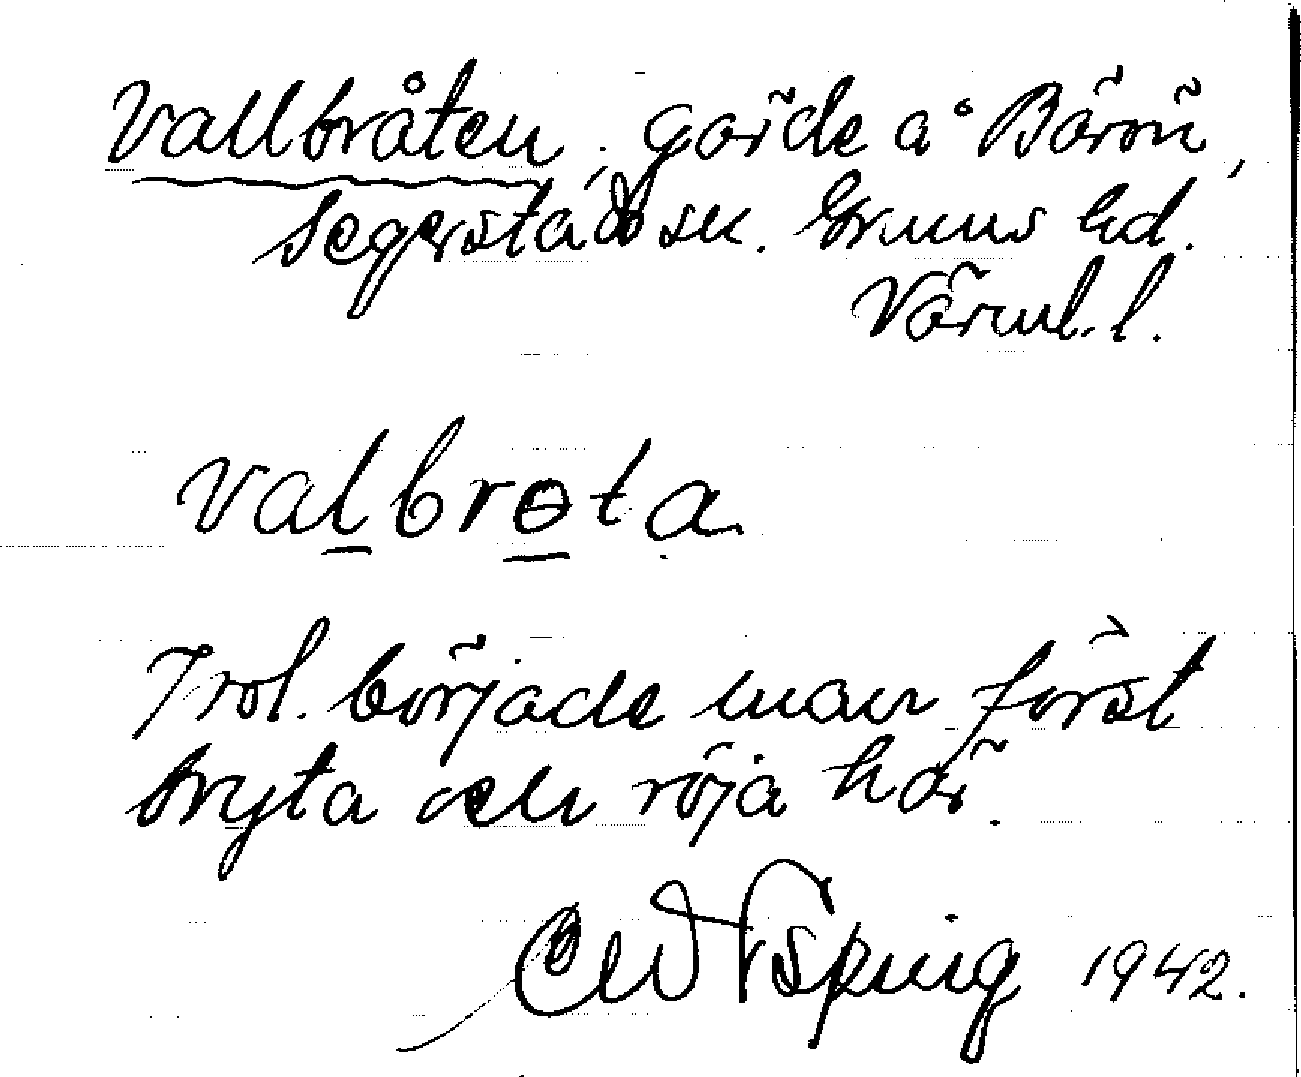 Vallbråten, gärde å Bärön,
Segerstads sn. Grums hd.
Värml. l.
valbrɵta
Trol. började man först
bryta och röja här.
1942.